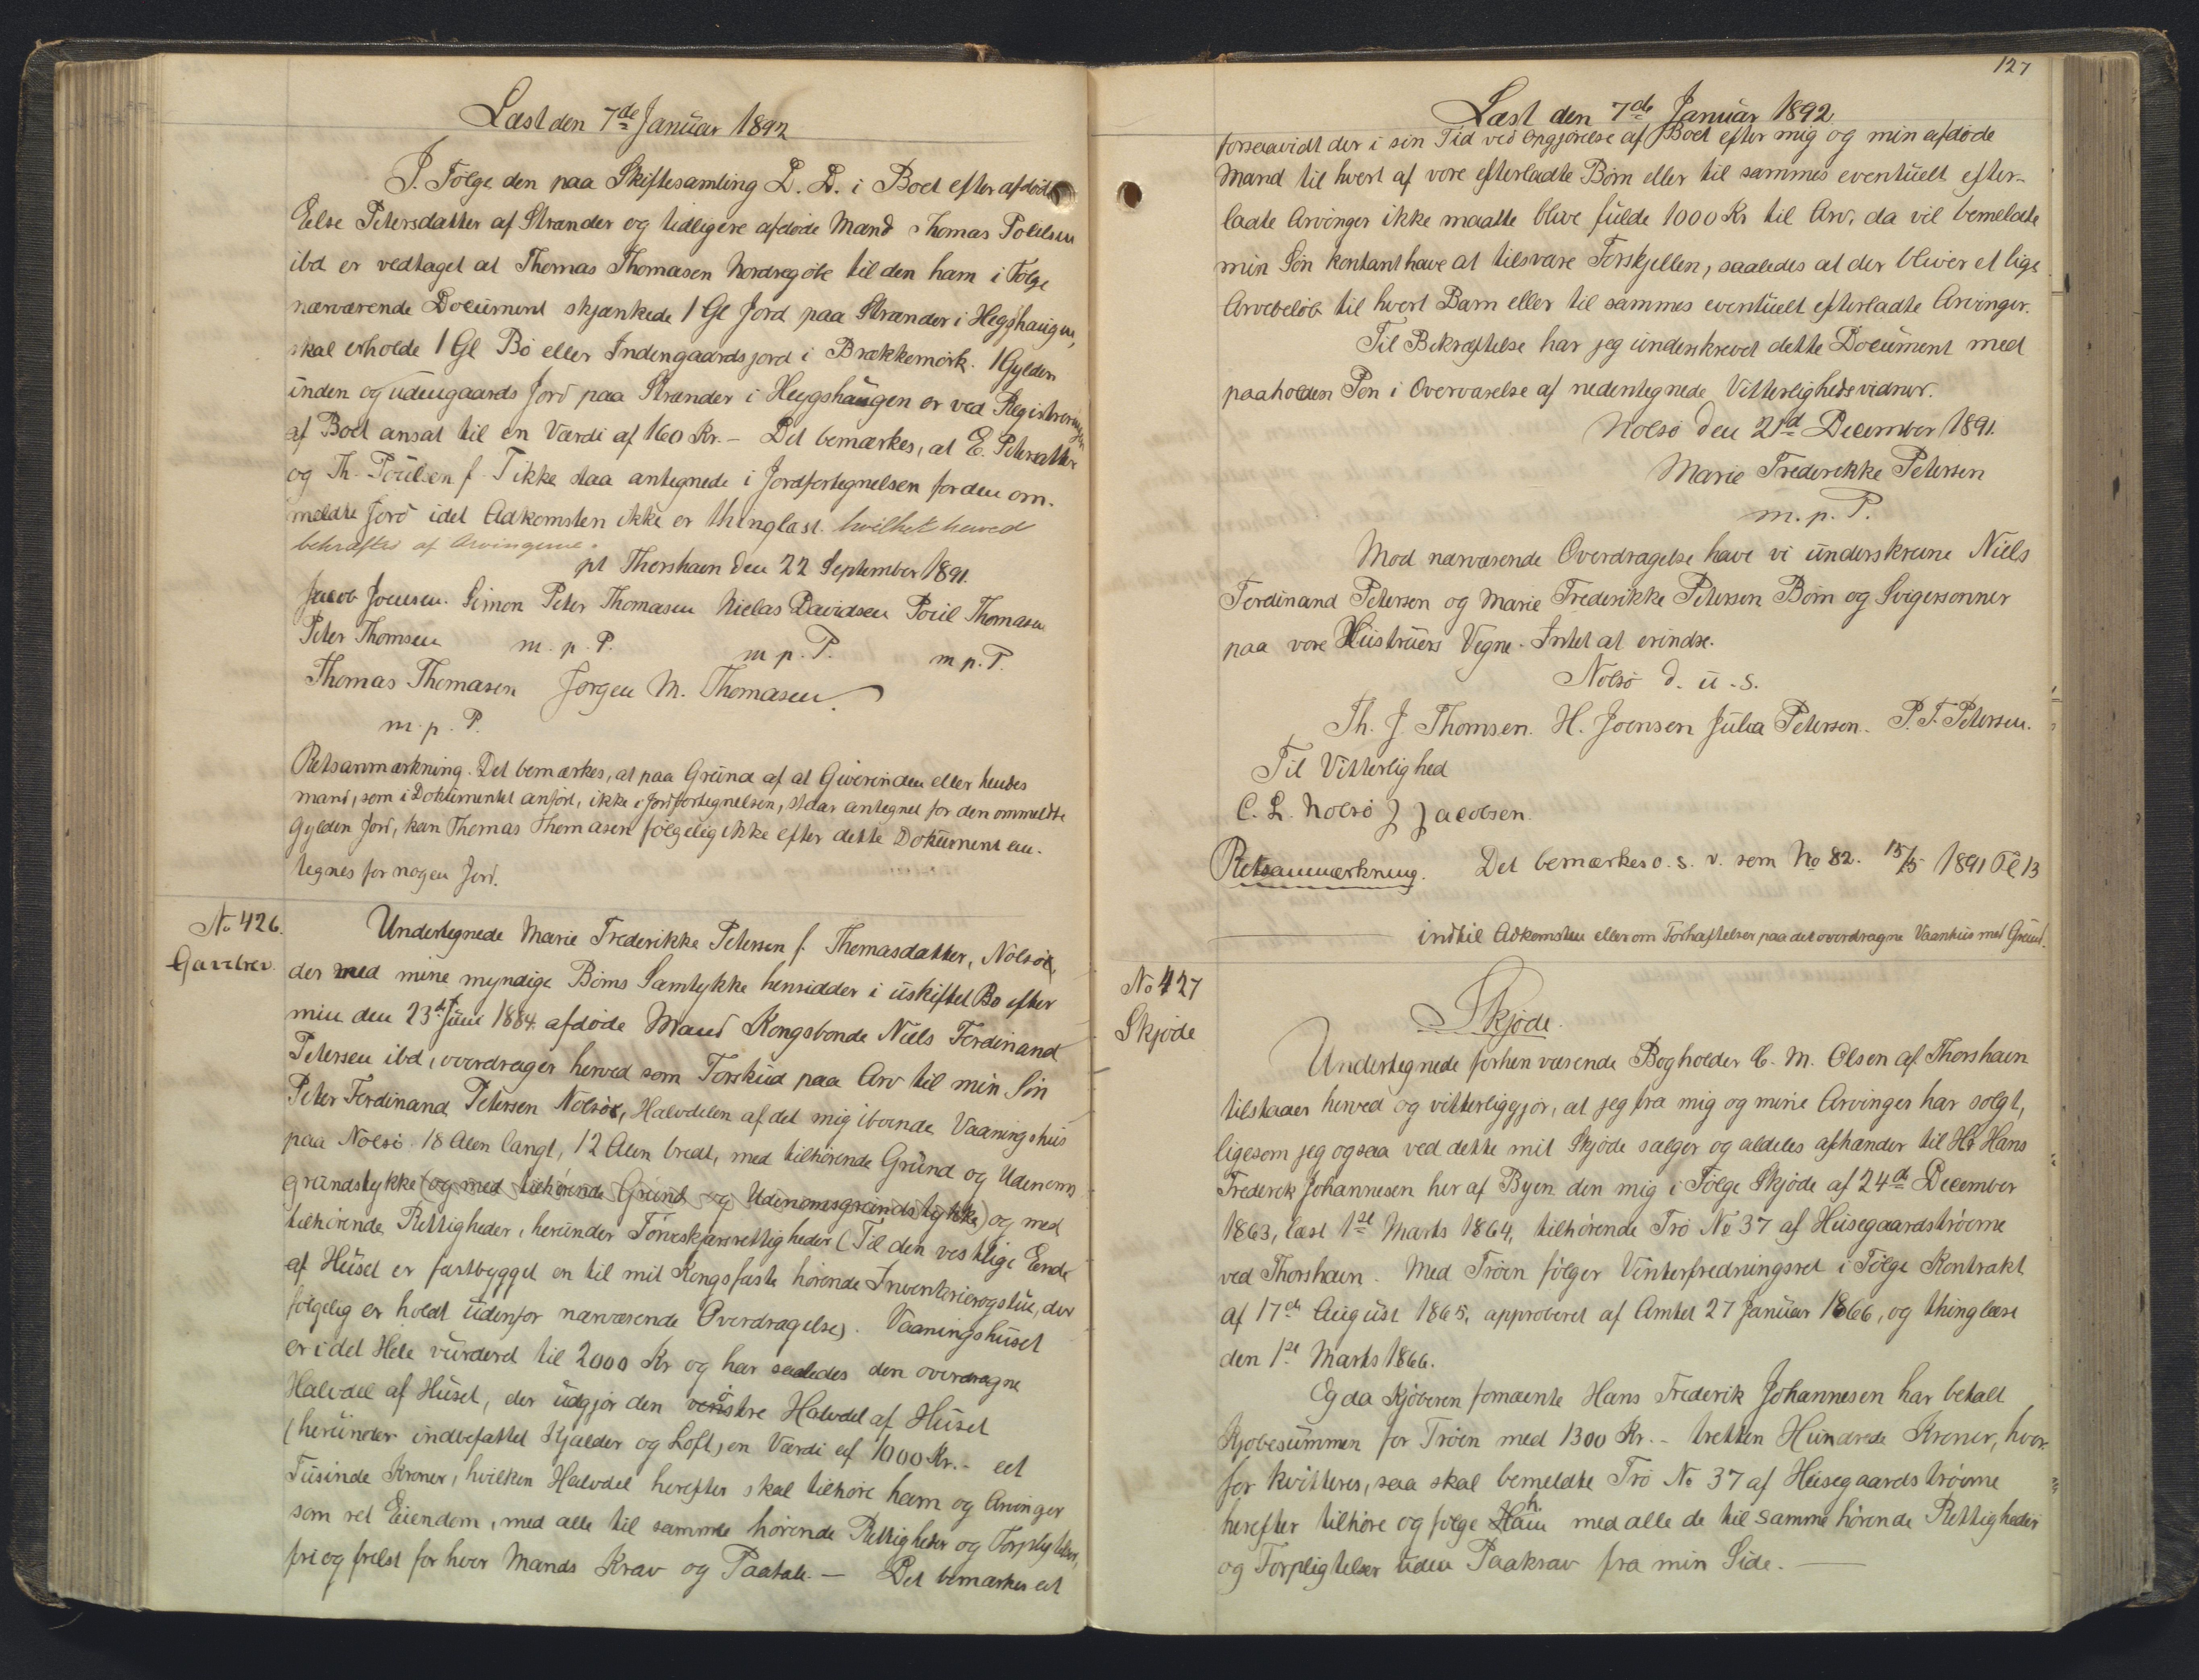 Læst den 7de Januar 1892
I. Følge den paa Skiftesamling D. D. i Boet efter afdøde
Else Petersdatter af Strænder og tidligere afdøde Mand Thomas Poulsen
ibd er vedtaget at Thomas Thomasen Nordregøte til den ham i Følge
nærværende Document skjænkede 1 Gl Jord paa Strænder i Heggshaugen,
skal erholde 1 Gl Bø eller Indengaardsjord i Brækkemørk. 1 Gylden
inden og udengaards Jord paa Strænder i Heygshaugen er ved Registreringen
af Boet ansat til en Værdi af 160 Kr. – Det bemærkes, at E. Petersdatter
og Th. Poulsen f. T ikke staa antegnede i Jordfortegnelsen for den om-
meldte Jord idet Adkomsten ikke er thinglæst. hvilket herved
bekræftes af Arvingerne.
pt Thorshavn den 22 September 1891.
Jacob Joensen. Simon Peter Thomasen Niclas Davidsen Poul Thomasen
Peter Thomsen m. p. P. m p. P. m p. P.
Thomas Thomasen Jørgen M. Thomasen.
m. p. P.
Retsanmærkning. Det bemærkes, at paa Grund af at Giverinden eller hendes
mand, som i Dokumentet anført, ikke i Jordfortegnelsen, staar antegnet for den ommeldte
Gylden Jord, kan Thomas Thomasen følgelig ikke efter dette Dokument an-
tegnes for nogen Jord.
No 426.
Gavebrev.
Undertegnede Marie Frederikke Petersen f. Thomasdatter, Nolsø,
der med mine myndige Børns Samtykke hensidder i uskiftet Bo efter
min den 23de Juni 1884 afdøde Mand Kongsbonde Niels Ferdinand
Petersen ibd, overdrager herved som Forskud paa Arv til min Søn
Peter Ferdinand Petersen Nolsø, Halvdelen af det mig iboende Vaaningshus
paa Nolsø. 18 Alen langt, 12 Alen bredt, med tilhørende Grund og Udenoms
grundstykke (og med tilhørende Grund og Udenomsgrundstykke) og med
tilhørende Rettigheder, herunder Tørveskjærsrettigheder (Til den vestlige Ende
af Huset er fastbygget en til mit Kongsfæste hørende Inventarierogstue, der
følgelig er holdt udenfor nærværende Overdragelse). Vaaningshuset
er i det Hele vurderd til 2000 Kr og har saaledes den overdragne
Halvdel af Huset, der udgjør den venstre Halvdel af Huset
(herunder indbefattet Kjælder og Loft, en Værdi af 1000 Kr. – eet
Tusinde Kroner, hvilken Halvdel herefter skal tilhøre ham og Arvinger
som ret Eiendom, med alle til samme hørende Rettigheder og Forpligtelser,
fri og frelst for hver Mands Krav og Paatale. – Det bemærkes at
127
Læst den 7de Januar 1892.
forsaavidt der i sin Tid ved Opgjørelse af Boet efter mig og min afdøde
Mand til hvert af vore efterladte Børn eller til sammes eventuelt efter-
ladte Arvinger ikke maatte blive fulde 1000 Kr til Arv, da vil bemeldte
min Søn kontant have at tilsvare Forskjellen, saaledes at der bliver et lige
Arvebeløb til hvert Barn eller til sammes eventuelt efterladte Arvinger.
Til Bekræftelse har jeg underskrevet dette Document med
paaholden Pen i Overværelse af nedentegnede Vitterlighedsvidner.
Nolsø den 21d December 1891.
Marie Frederikke Petersen
m. p. P.
Mod nærværende Overdragelse have vi underskrevne Niels
Ferdinand Petersen og Marie Frederikke Petersen Børn og Svigersønner
paa vore Hustruers Vegne. Intet at erindre.
Nolsø d. u. s.
Th. J. Thomsen. H. Joensen Julia Petersen. P. F. Petersen.
Til Vitterlighed
C. L. Nolsø J Jacobsen.
Retsanmærkning. Det bemærkes o. s. v. som No 82. 15/5 1891
indtil Adkomsten eller om Forhæftelser paa det overdragne Vaanhus med Grund.
No 427
Skjøde
Skjøde.
Undertegnede forhenværende Bogholder C. M. Olsen af Thorshavn
tilstaaer herved og vitterliggjør, at jeg fra mig og mine Arvinger har solgt,
ligesom jeg ogsaa ved dette mit Skjøde sælger og aldeles afhænder til Hr Hans
Frederik Johannesen her af Byen den mig i Følge Skjøde af 24de December
1863, læst 1st Marts 1864, tilhørende Trø No 37 af Husegaardstrøerne
ved Thorshavn. Med Trøen følger Vinterfredningsret i Følge Kontrakt
af 17de August 1865, approberet af Amtet 27 Januar 1866, og thinglæst
den 1st Marts 1866.
Og da Kjøberen fornævnte Hans Frederik Johannesen har betalt
Kjøbesummen for Trøen med 1300 Kr. – tretten Hundrede Kroner, hvor-
for kvitteres, saa skal bemeldte Trø No 37 af Husegaardstrøerne
herefter tilhøre og følge Ham med alle de til samme hørende Rettigheder
og Forpligtelser uden Paakrav fra min Side.